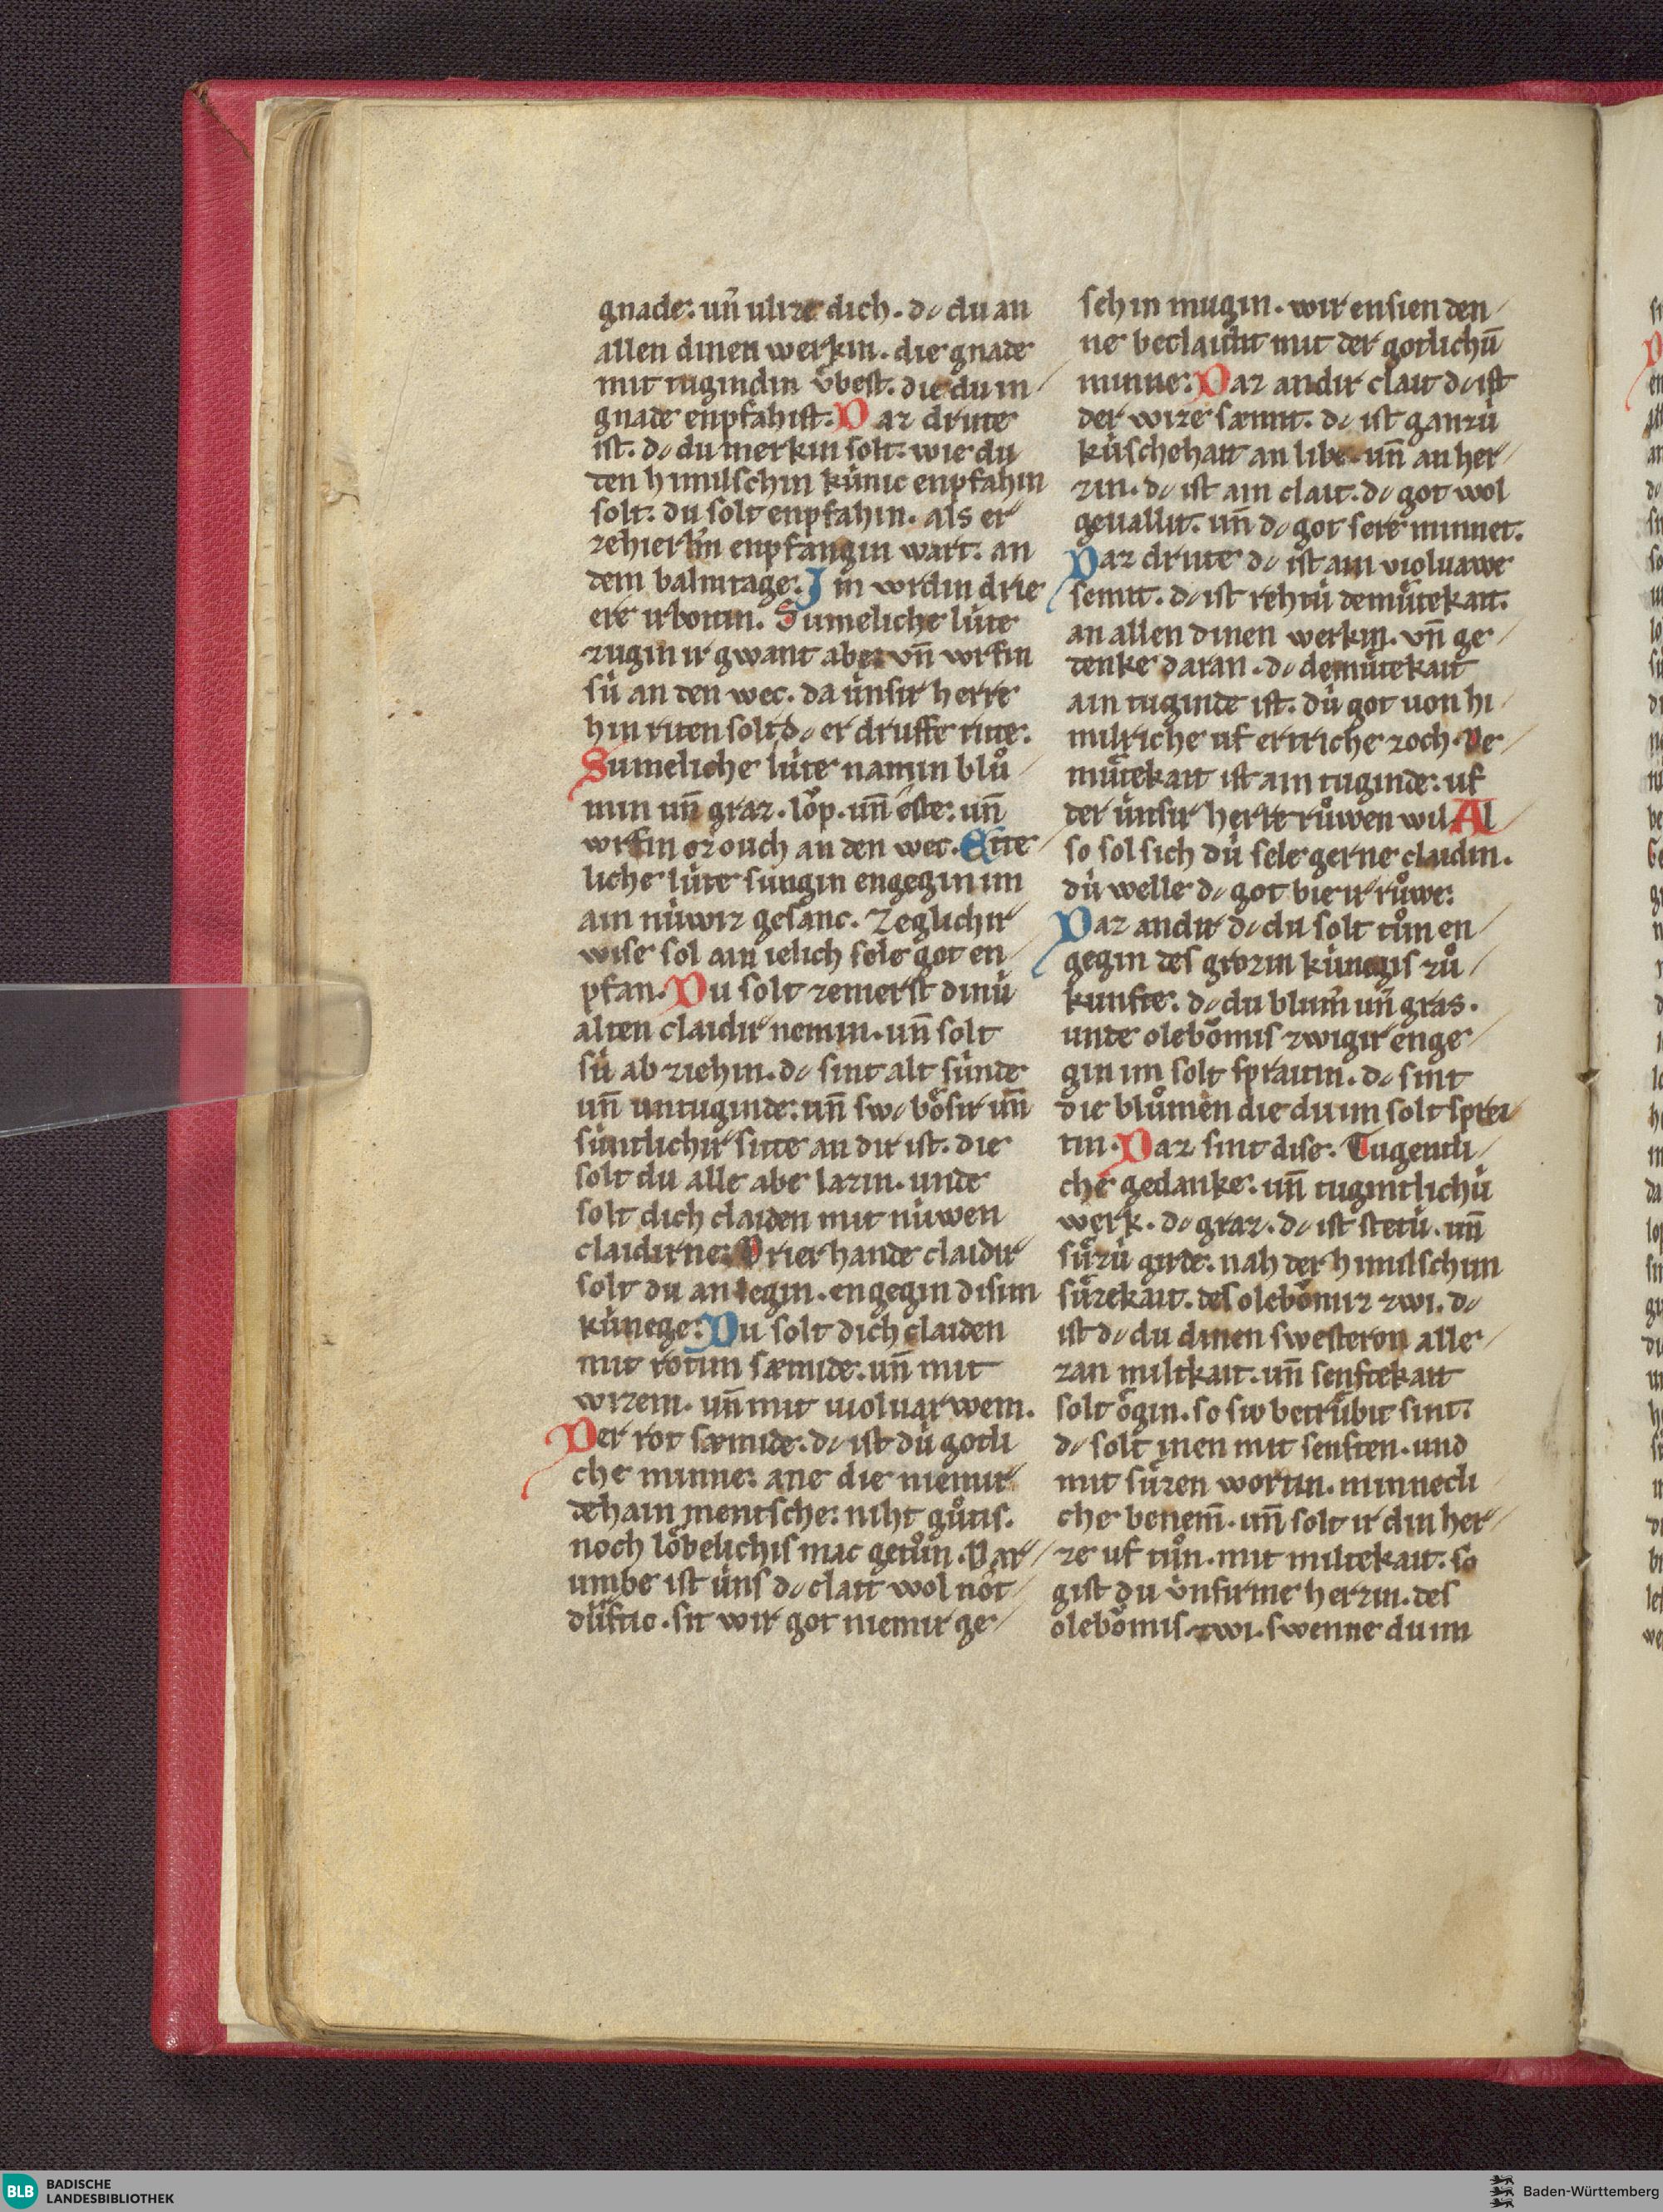 gnade: un̄ vlize dich. dc du an
allen dinen werkin. die gnade
mit tugindin v̄best. die du in
gnade enpfahist. Daz dritte
ist. dc du merkin solt: wie du
den himilschin kúnic enpfahin
solt: du solt enpfahin. als er
ze hierlm̄ enpfangin wart: an
dem balmtage: Im wrdin drie
ere irbotin. Sumeliche lúte
zugin ir gwant abe: vn̄ wrfin
sú an den wec. da únsir herre
hin riten solt dc er druffe ritte:
Sumeliche lúte namin blů
min un̄ graz. lǒp. un̄ este: un̄
wrfin oz ouch an den wec. Ette
liche lúte sungin engegin im
ain núwiz gesanc. Zeglichir
wise sol ain ielich sele got en
pfan. Du solt zemerst dinú
alten claidir nemin. un̄ solt
sú ab ziehin. dc sint alt súnde
un̄ untuginde: un̄ swc bősir un̄
súntlichir sitte an dir ist. die
solt du alle abe lazin. unde
solt dich claiden mit núwen
claidirne: Drier hande claidir
solt du an legin. engegin disim
kúnege: Du solt dich claiden
mit rotim sæmide: un̄ mit
wizem. un̄ mit violuarwem.
Der rot sæmide: dc ist dú gotli
che minne: ane die niemir
dehain mentsche: niht gůtis.
noch lőbelichis mac getůn. Dar
umbe ist úns dc clait wol not
dúftic. sit wir got niemir ge
sehin mugin. wir ensien den
ne beclaidit mit der gotlichū
minne: Daz andir clait dc ist
der wize sæmit. dc ist ganzú
kúschehait an libe. un̄ an her
zin. dc ist ain clait. dc got wol
geuallit. un̄ dc got sere minnet.
Daz dritte dc ist ain violuawe
semit. dc ist rehtú demůtekait.
an allen dinen werkin. vn̄ ge
denke daran. dc demůtekait
ain tuginde ist. dú got uon hi
milriche uf ertriche zoch. De
můtekait ist ain tuginde: uf
der únsir herre růwen wil Al
so sol sich dú sele gerne claidin.
dú welle dc got bie ir růwe:
Daz andir dc du solt tůn en
gegin des grozin kúnegis zů
kunfte: dc du blům̄ un̄ gras.
unde olebǒmis zwigir enge
gin im solt spraitin. dc sint
die blůmen die du im solt sprei
tin. Daz sint dise: Tugentli
che gedanke: un̄ tugintlichú
werk. dc graz. dc ist stetú. un̄
sůzú girde: nah der himilschun
sůzekait. des olebǒmiz zwi. dc
ist dc du dinen swesteron alle
zan miltkait. un̄ senftekait
solt ǒgin. so siv betrůbit sint:
dc solt inen mit senften. und
mit sůzen wortin. minnecli
che benem̄. un̄ solt ir din her
ze uf tůn. mit miltekait: so
gist du v̄nsirme herzin. des
olebǒmis zwi. swenne du im
BLB BADISCHE
LANDESBIBLIOTHEK
Baden-Württemberg